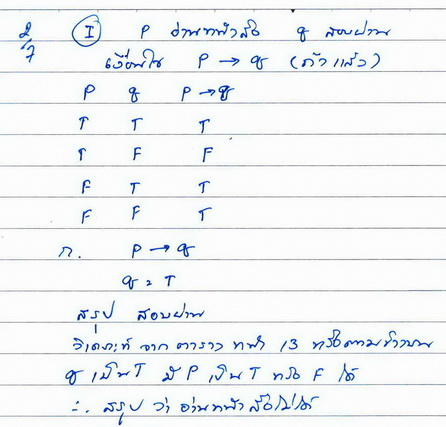 2/7 I P อ่านหนังสือ q สอบผ่าน
เงื่อนไข P → q (ถ้า แล้ว)
P q P → q
T T T
T F F
F T T
F F T
ก. P → q
q = T
สรุป สอบผ่าน
วิเคราะห์ จาก ตาราง หน้า 13 หรือตามข้างบน
q เป็น T มี P เป็น T หรือ F ได้
∴ สรุป ว่า อ่านหนังสือไม่ได้